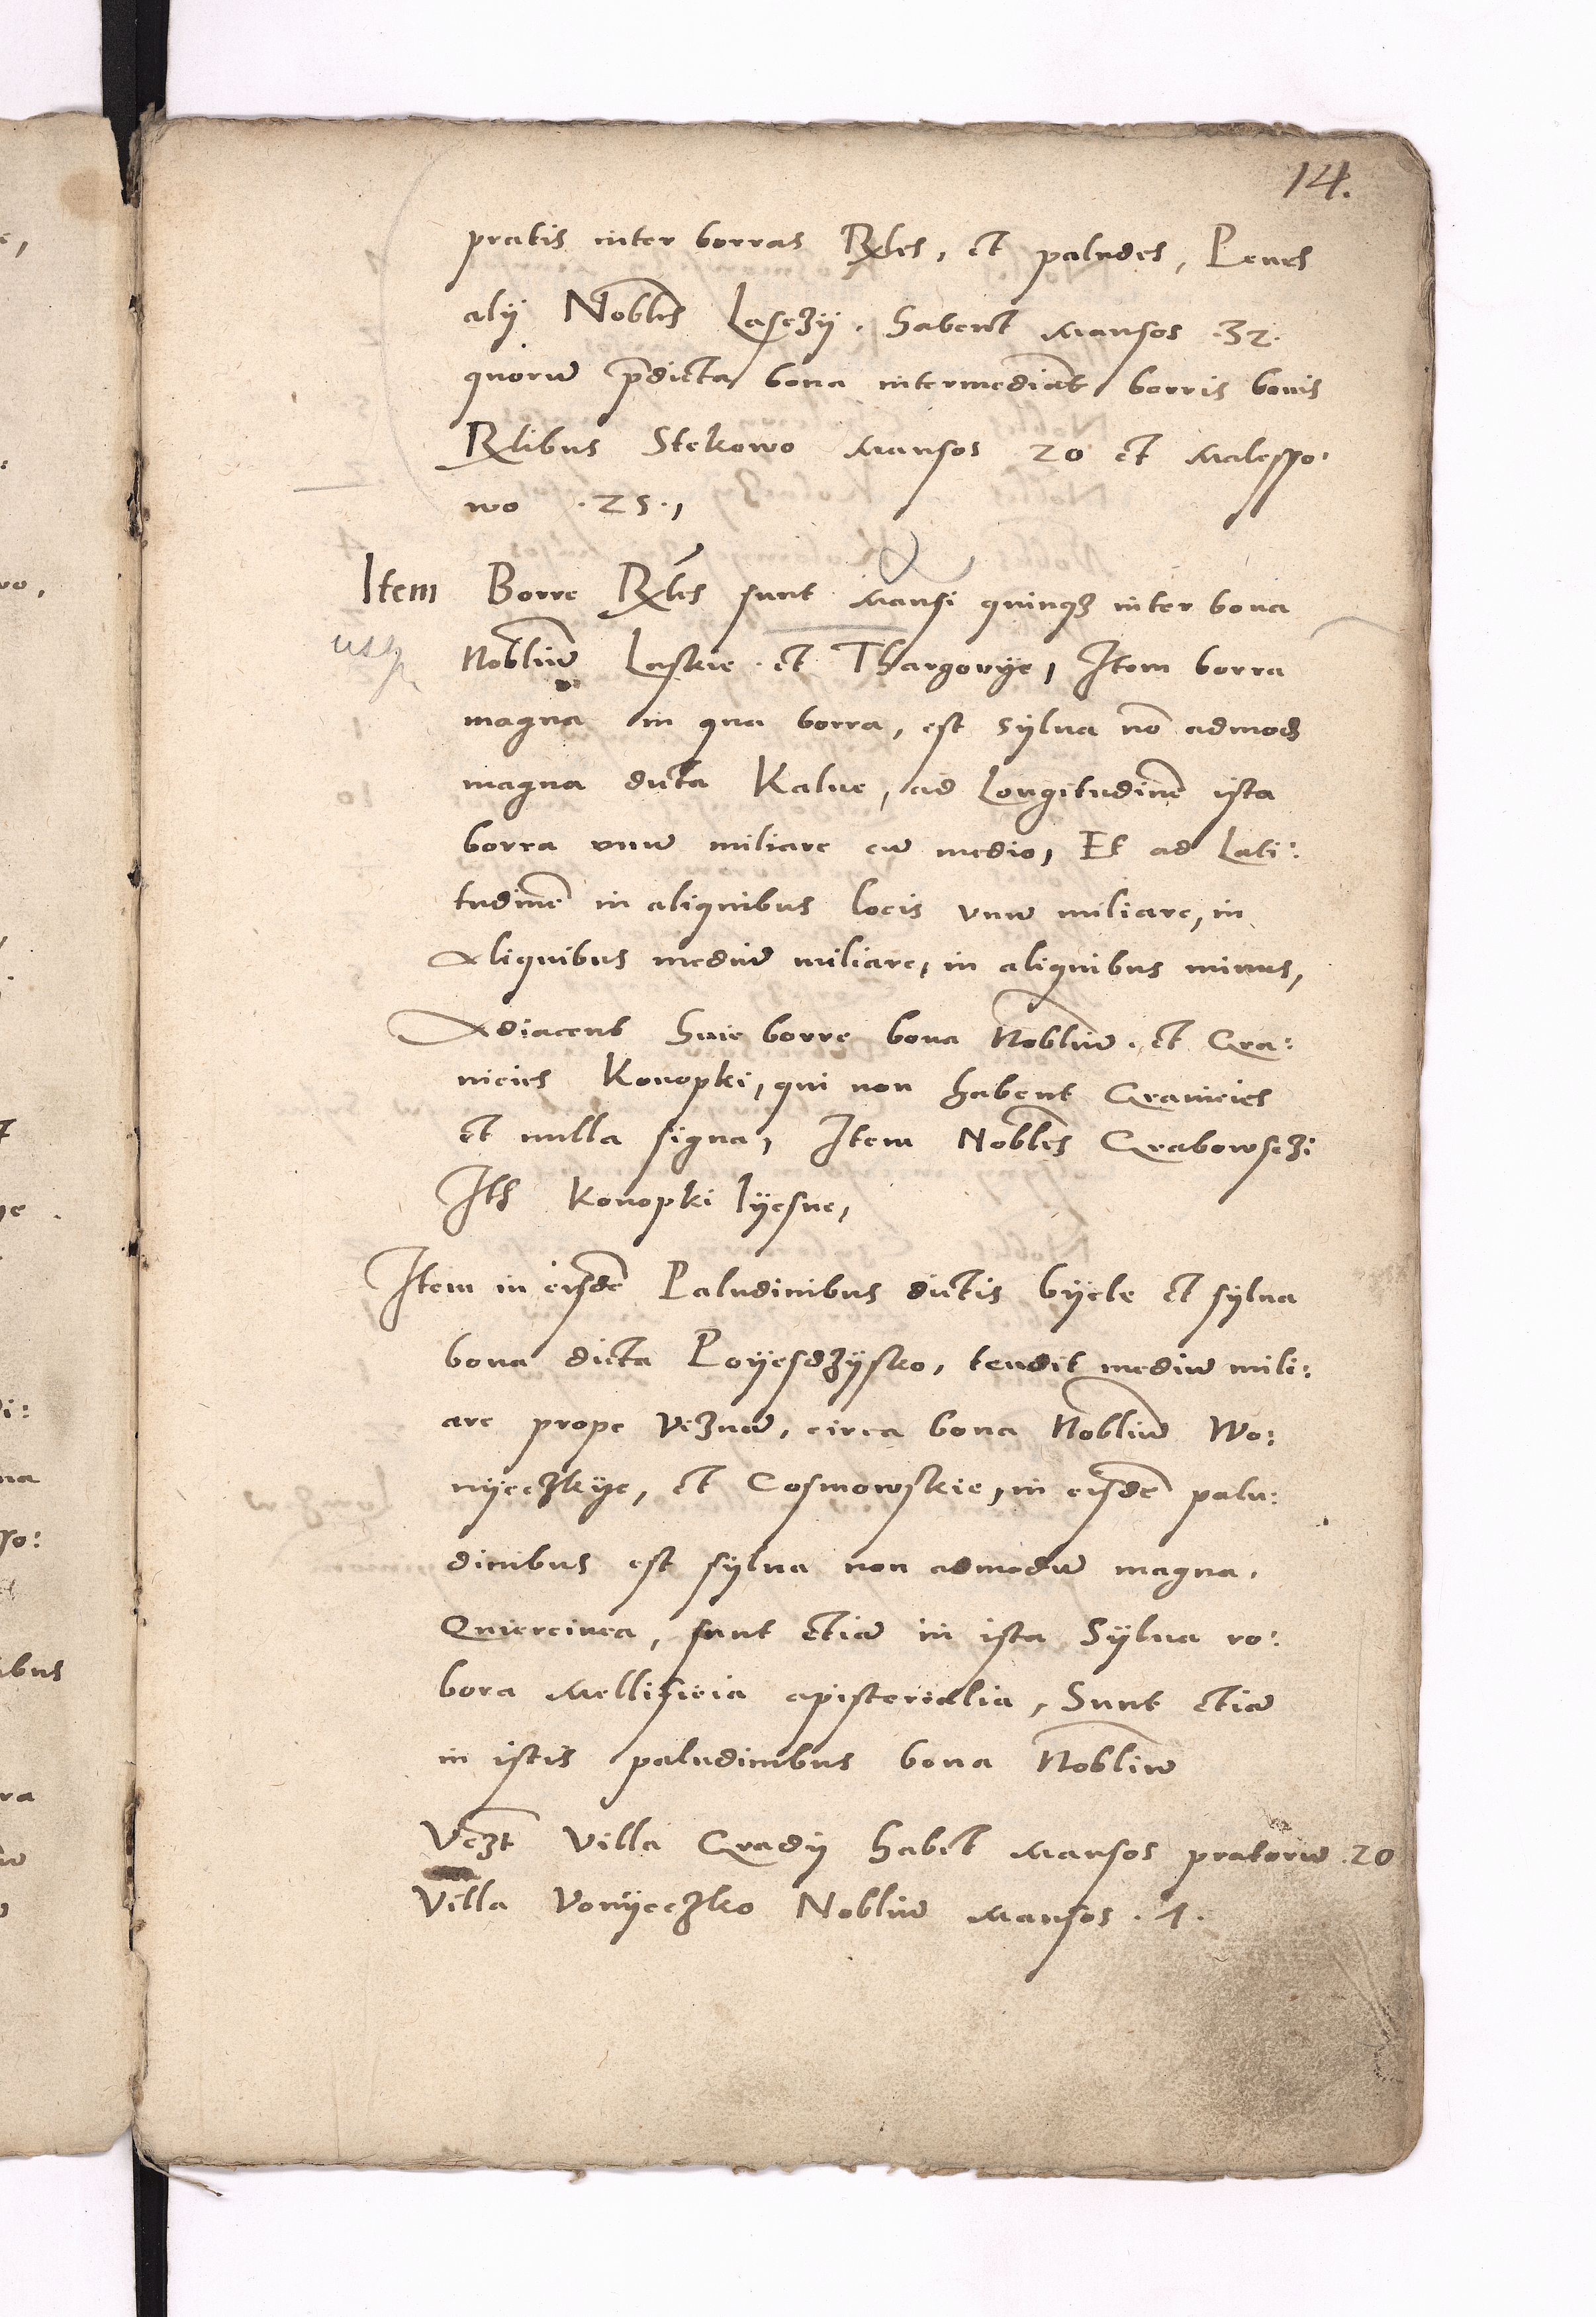 14.
pratis inter borras Rles, et paludes, Penes
alÿ Nobles Laseʒÿ. habent Mansos .32.
quorū p̄dicta bona intermediāt borris bonis
Rlibus Stekowo Mansos 20 et Malesso:
wo .25.,
Item Borre Rles sunt Mansi quinqʒ inter bona
Nobliū Laskie et Thargovye, Item borra
magna in qua borra, est sylua nō admodʒ
magna dicta Kalue, ad Longitudinē ista
borra vnū miliare cū medio, Et ad Lati:
tudinē in aliquibus locis vnū miliare, in
Aliquibus mediū miliare, in aliquibus minus,
Adiacent huic borre bona Nobliū. et Gra:
nicies Konopki, qui non habent Granicies
et nulla signa, Item Nobles Grabowscʒi
Itē Konopki lÿesne,
Item in eisdē Paludinibus dictis bÿele et sylua
bona dicta Poÿesdʒÿsko, tendit mediū mili:
are prope Veʒnā, circa bona Nobliū Wo:
nÿecʒkÿe, et Cosmowskie, in eisdē palu:
dinibus est sÿlua non admodū magna.
Quiercinea, sunt etiā in ista Sÿlua ro:
bora Mellificia apisterialia, Sunt etiā
in istis paludinibus bona Nobliū
Villa Gradÿ habēt Mansos pratorū .20
Villa Vonÿecʒko Nobliū Mansos .1.